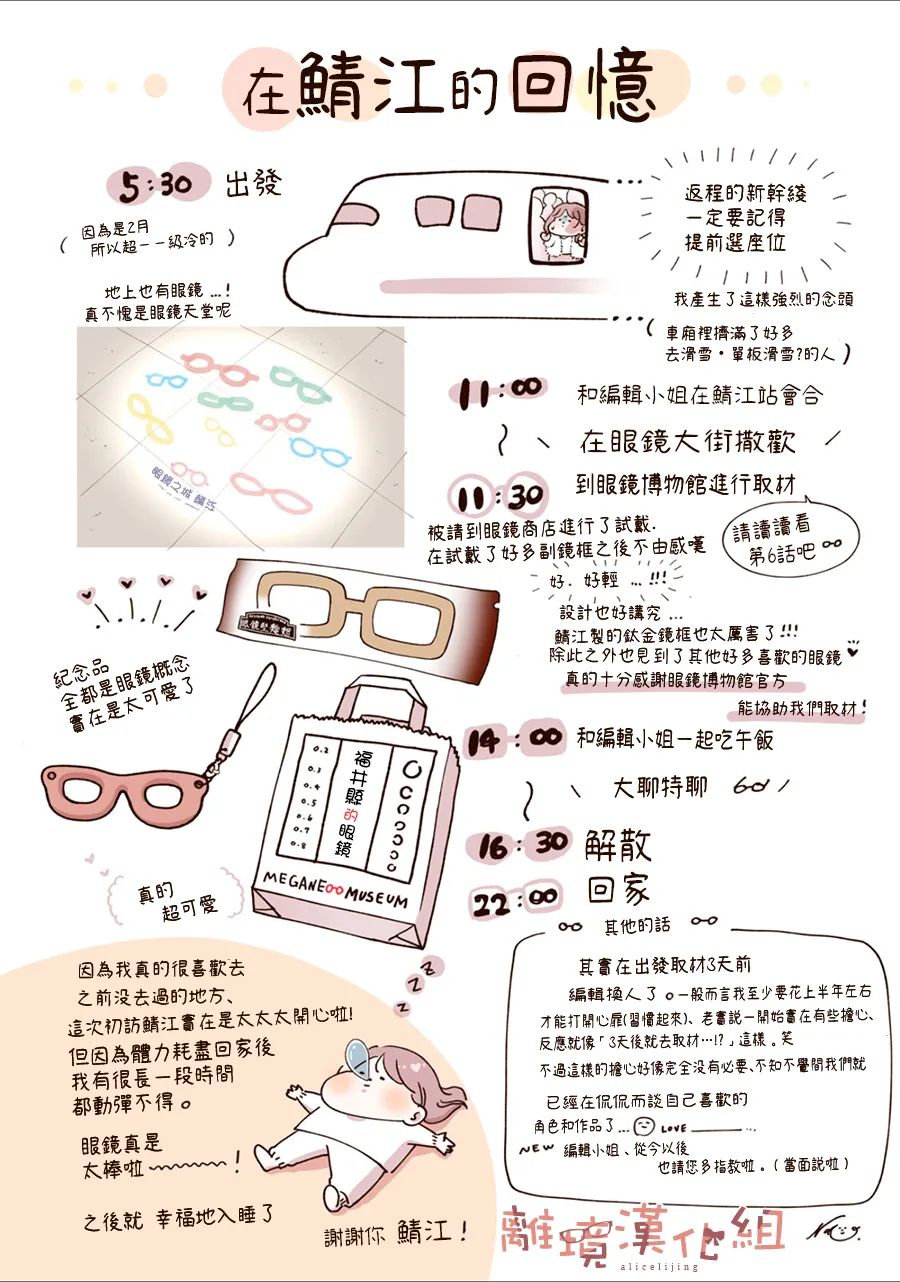 在鯖江的回憶
5:30 出發
( 因為是2月
所以超——級冷的 )
返程的新幹綫
一定要記得
提前選座位
我產生了這樣強烈的念頭
( 車廂裡擠滿了好多
去滑雪・單板滑雪?的人 )
地上也有眼鏡 ...!
真不愧是眼鏡天堂呢
眼鏡之城 鯖江
11:00 和編輯小姐在鯖江站會合
在眼鏡大街撒歡
11:30 到眼鏡博物館進行取材
被請到眼鏡商店進行了試戴.
在試戴了好多副鏡框之後不由感嘆
請讀讀看
第6話吧
好. 好輕 ...!!!
設計也好講究...
鯖江製的鈦金鏡框也太厲害了!!!
除此之外也見到了其他好多喜歡的眼鏡
真的十分感謝眼鏡博物館官方
能協助我們取材!
紀念品
全都是眼鏡概念
實在是太可愛了
0.2
0.3
0.4
0.5
0.6
0.7
0.8
福井縣的眼鏡
MEGANE MUSEUM
真的
超可愛
14:00 和編輯小姐一起吃午飯
大聊特聊
16:30 解散
22:00 回家
其他的話
其實在出發取材3天前
編輯換人了。一般而言我至少要花上半年左右
才能打開心扉(習慣起來)、老實說一開始實在有些擔心、
反應就像「3天後就去取材…!?」這樣。笑
不過這樣的擔心好像完全沒有必要、不知不覺間我們就
已經在侃侃而談自己喜歡的
角色和作品了... LOVE
NEW 編輯小姐、從今以後
也請您多指教啦。(當面說啦)
因為我真的很喜歡去
之前沒去過的地方、
這次初訪鯖江實在是太太太開心啦!
但因為體力耗盡回家後
我有很長一段時間
都動彈不得。
zzz
眼鏡真是
太棒啦~~~~~~!
之後就 幸福地入睡了
謝謝你 鯖江!
離境漢化組
alicelijing